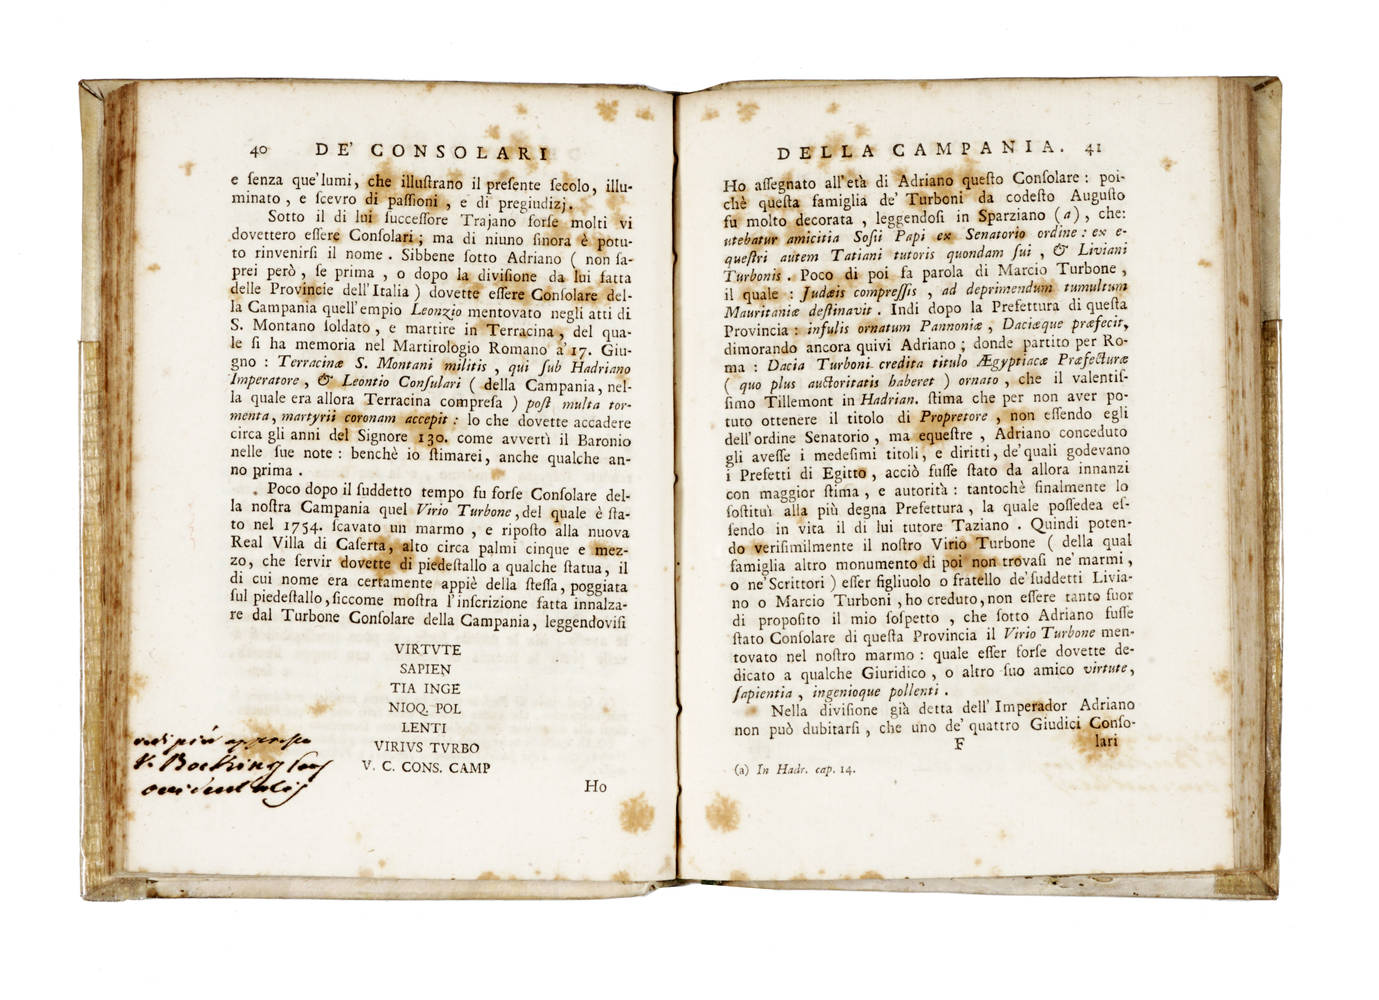 40 DE' CONSOLARI
e ſenza que' lumi, che illuſtrano il preſente ſecolo, illu-
minato, e ſcevro di paſſioni, e di pregiudizj.
Sotto il di lui ſucceſſore Trajano forſe molti vi
dovettero eſſere Conſolari; ma di niuno ſinora è potu-
to rinvenirſi il nome. Sibbene ſotto Adriano (non ſa-
prei però, ſe prima, o dopo la diviſione da lui fatta
delle Provincie dell'Italia) dovette eſſere Conſolare del-
la Campania quell'empio Leonzio mentovato negli atti di
S. Montano ſoldato, e martire in Terracina, del qua-
le ſi ha memoria nel Martirologio Romano a' 17. Giu-
gno: Terracinæ S. Montani militis, qui ſub Hadriano
Imperatore, & Leontio Conſulari (della Campania, nel-
la quale era allora Terracina compreſa) poſt multa tor-
menta, martyrii coronam accepit: lo che dovette accadere
circa gli anni del Signore 130. come avvertì il Baronio
nelle ſue note: benchè io ſtimarei, anche qualche an-
no prima.
Poco dopo il ſuddetto tempo fu forſe Conſolare del-
la noſtra Campania quel Virio Turbone, del quale è ſta-
to nel 1754. ſcavato un marmo, e ripoſto alla nuova
Real Villa di Caſerta, alto circa palmi cinque e mez-
zo, che ſervir dovette di piedeſtallo a qualche ſtatua, il
di cui nome era certamente appiè della ſteſſa, poggiata
ſul piedeſtallo, ſiccome moſtra l'inſcrizione fatta innalza-
re dal Turbone Conſolare della Campania, leggendoviſi
VIRTVTE
SAPIEN
TIA INGE
NIOQ. POL
LENTI
VIRIVS TVRBO
V. C. CONS. CAMP
Ho
vedi più appresso
V. Bocking
occidentalis
DELLA CAMPANIA. 41
Ho aſſegnato all'età di Adriano queſto Conſolare: poi-
chè queſta famiglia de' Turboni da codeſto Auguſto
fu molto decorata, leggendoſi in Sparziano (a), che:
utebatur amicitia Soſii Papi ex Senatorio ordine: ex e-
queſtri autem Tatiani tutoris quondam ſui, & Liviani
Turbonis. Poco di poi fa parola di Marcio Turbone,
il quale: Judæis compreſſis, ad deprimendum tumultum
Mauritaniæ deſtinavit. Indi dopo la Prefettura di queſta
Provincia: infulis ornatum Pannoniæ, Daciæque præfecit,
dimorando ancora quivi Adriano; donde partito per Ro-
ma: Dacia Turboni credita titulo Ægyptiacæ Præfecturæ
(quo plus auctoritatis haberet) ornato, che il valentiſ-
ſimo Tillemont in Hadrian. ſtima che per non aver po-
tuto ottenere il titolo di Propretore, non eſſendo egli
dell'ordine Senatorio, ma equeſtre, Adriano conceduto
gli aveſſe i medeſimi titoli, e diritti, de' quali godevano
i Prefetti di Egitto, acciò fuſſe ſtato da allora innanzi
con maggior ſtima, e autorità: tantochè finalmente lo
ſoſtituì alla più degna Prefettura, la quale poſſedea eſ-
ſendo in vita il di lui tutore Taziano. Quindi poten-
do veriſimilmente il noſtro Virio Turbone (della qual
famiglia altro monumento di poi non trovaſi ne' marmi,
o ne' Scrittori) eſſer figliuolo o fratello de' ſuddetti Livia-
no o Marcio Turboni, ho creduto, non eſſere tanto fuor
di propoſito il mio ſoſpetto, che ſotto Adriano fuſſe
ſtato Conſolare di queſta Provincia il Virio Turbone men-
tovato nel noſtro marmo: quale eſſer forſe dovette de-
dicato a qualche Giuridico, o altro ſuo amico virtute,
ſapientia, ingenioque pollenti.
Nella diviſione già detta dell'Imperador Adriano
non può dubitarſi, che uno de' quattro Giudici Conſo-
F lari
(a) In Hadr. cap. 14.